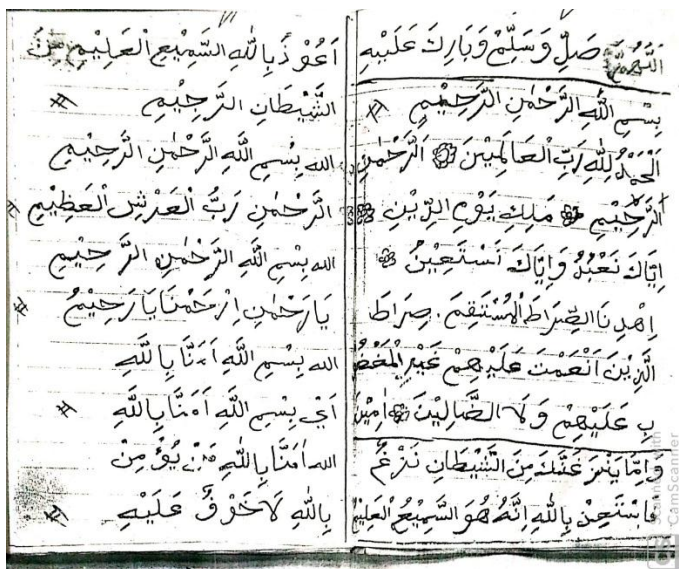 اَللّٰهُمَّ صَلِّ وَسَلِّمْ وَبَارِكَ عَلَيْهِ
بِسْمِ اللّٰهِ الرَّحْمٰنِ الرَّحِيْمِ
اَلْحَمْدُ لِلّٰهِ رَبِّ الْعَالَمِيْنَ اَلرَّحْمٰنِ
الرَّحِيْمِ مَلِكِ يَوْمِ الدِّيْنِ
اِيَّاكَ نَعْبُدُ وَاِيَّاكَ اَسْتَعِيْنُ
اِهْدِنَا الصِّرَاطَ الْمُسْتَقِمَ . صِرَاطَ
الَّذِيْنَ اَنْعَمْتَ عَلَيْهِمْ غَيْرِ الْمَغْضُ
بِ عَلَيْهِمْ وَلَا الضَّالِيْنَ اٰمِيْنَ
وَاِمَّا مِنَ الشَّيْطَانِ نَزْغٌ
بِاللّٰهِ اِنَّهُ هُوَ السَّمِيْعُ الْعَلِيْمُ
اَعُوْذُ بِاللّٰهِ السَّمِيْعِ الْعَلِيْمِ مِنَ
الشَّيْطَانِ الرَّجِيْمِ
الله بِسْمِ اللّٰهِ الرَّحْمٰنِ الرَّحِيْمِ
الرَّحْمٰنِ رَبُّ الْعَرْشِ الْعَظِيْمِ
الله بِسْمِ اللّٰهِ الرَّحْمٰنِ الرَّحِيْمِ
يَارَحْمٰنِ اِرْحَمْنَا يَارَحِيْمُ
الله بِسْمِ اللّٰهِ اٰمَنَّا بِاللّٰهِ
اَيْ بِسْمِ اللّٰهِ اٰمَنَّا بِاللّٰهِ
الله اٰمَنَّا بِاللّٰهِ مَنْ يُؤْمِنْ
بِاللّٰهِ لَاخَوْفٌ عَلَيْهِ
Scanned with
CamScanner